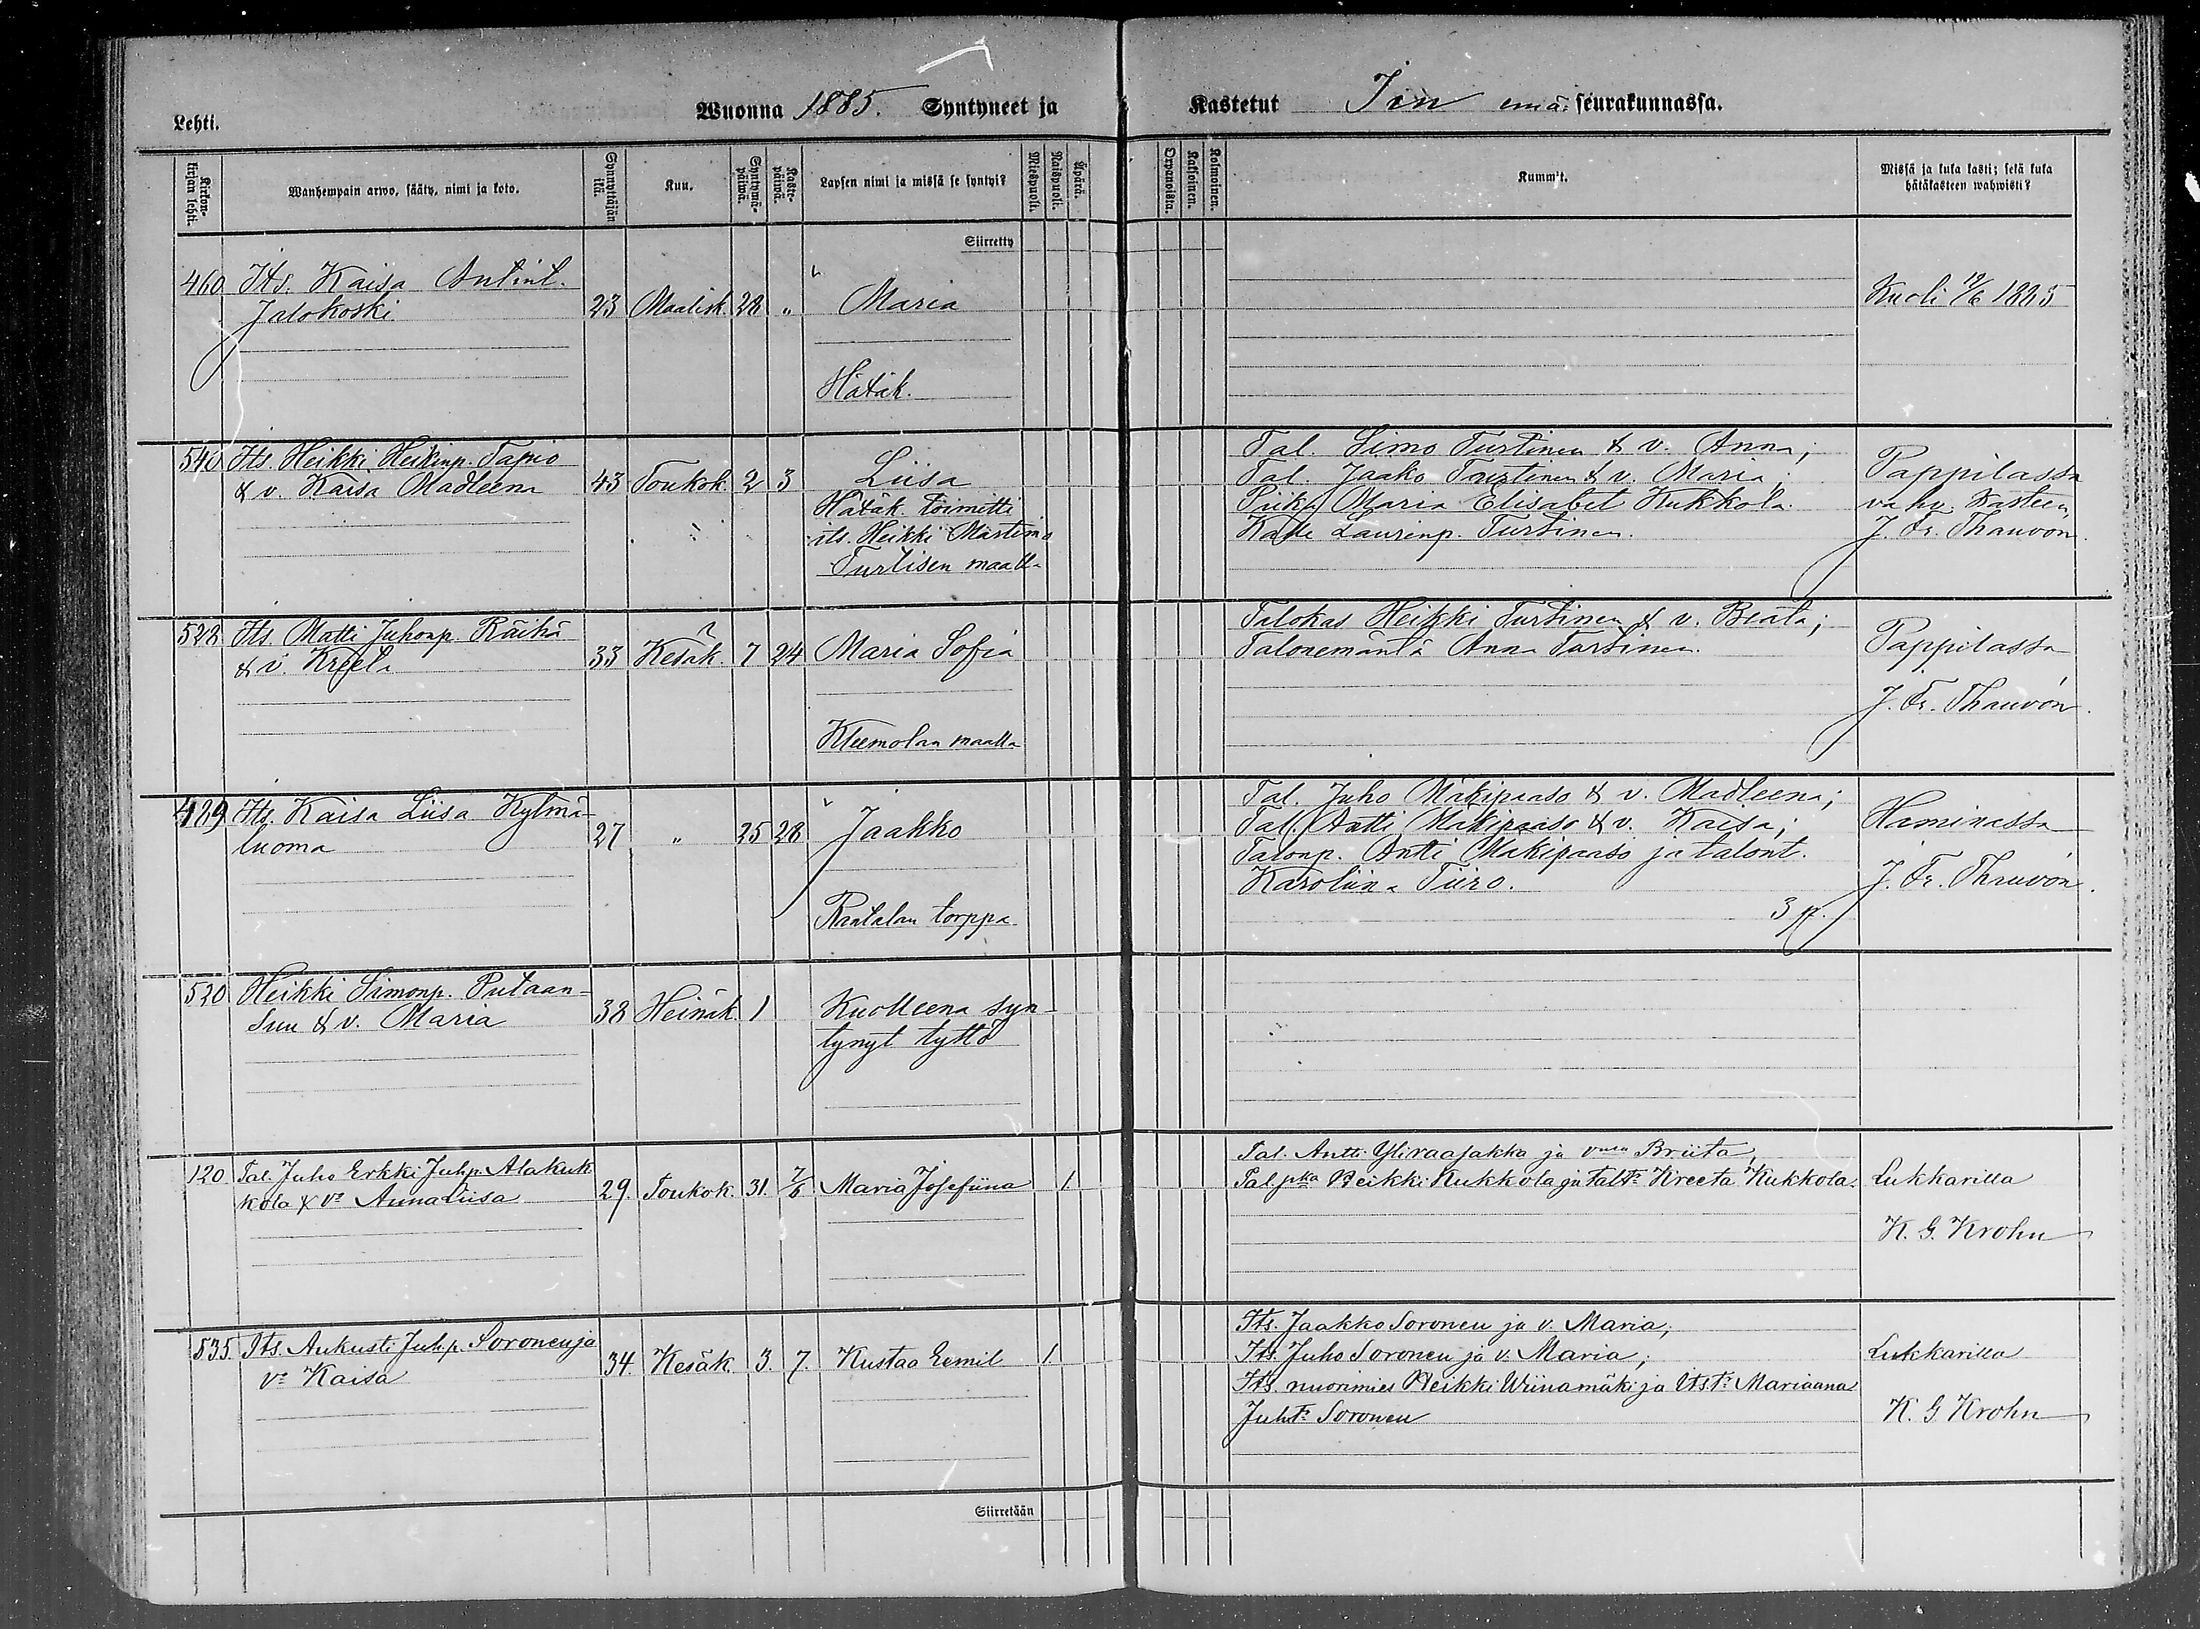 Lehti.
Wuonna 1885. Syntyneet ja
Kastetut Iin emä seurakunnassa.
Kirkonkirjan lehti.
Wanhempain arwo, sääty, nimi ja koto.
Synnyttäjän ikä.
Kuu.
Syntymäpäiwä.
Kastepäiwä.
Lapsen nimi ja missä se syntyi?
Miespuoli.
Naispuoli.
Äpärä.
Orpanoista.
Kaksoinen.
Kolmoinen.
Kumm't.
Missä ja kuka kasti; sekä kuka
hätäkasteen wahwisti?
Siirretty
460 Its. Kaisa Antint.
Jalokoski 23 Maalisk. 28 " Maria
Hätäk.
Kuoli 12/6 1885
540 Its. Heikki Heikinp. Tapio
& v. Kaisa Madleena 43 Toukok. 2 3 Liisa
Hätäk. toimitti
its. Heikki Martimo
Turtisen maalla
Tal. Simo Turtinen & v. Anna;
Tal. Jaako Turtinen & v. Maria;
Piika Maria Elisabet Kukkola.
Kalle Laurinp. Turtinen.
Pappilassa
vahv. kasteen
J. Fr. Thauvón.
528 Its. Matti Juhonp. Räihä
& v. Kreeta 33 Kesäk. 7 24 Maria Sofia
Kleemolan maalla
Talokas Heikki Turtinen & v. Beata;
Talonemäntä Anna Turtinen.
Pappilassa
J. Fr. Thauvón.
489 Its. Kaisa Liisa Kylmä-
luoma 27 " 25 28 Jaakko
Rantalan torppa.
Tal. Juho Mäkipaaso & v. Madleena;
Tal. Antti Mäkipaaso & v. Kaisa;
Talonp. Antti Mäkipaaso ja talont.
Karoliina Tiiro.
3 p.
Haminassa
J. Fr. Thauvón.
520 Heikki Simonp. Putaan-
suu & v. Maria 38 Heinäk. 1 Kuolleena syn-
tynyt tyttö
120 Tal. Juho Erkki Juhp. Alakuk
kola & v: Anna Liisa 29 Toukok. 31. 7/6 Maria Josefiina 1.
Tal. Antti Yliraasakka ja vmsa Briita,
Tal pka Heikki Kukkola ja talt: Kreeta Kukkola.
Lukkarilla
K. G. Krohn
535. Its. Aukusti Juhp. Soronen ja
v: Kaisa 34. Kesäk. 3. 7. Kustaa Eemil 1.
Its. Jaakko Soronen ja v. Maria;
Its. Juho Soronen ja v: Maria;
Its. nuorimies Heikki Wiinamäki ja Its.t: Mariaana
Juht: Soronen
Lukkarilla
K. G Krohn
Siirretään